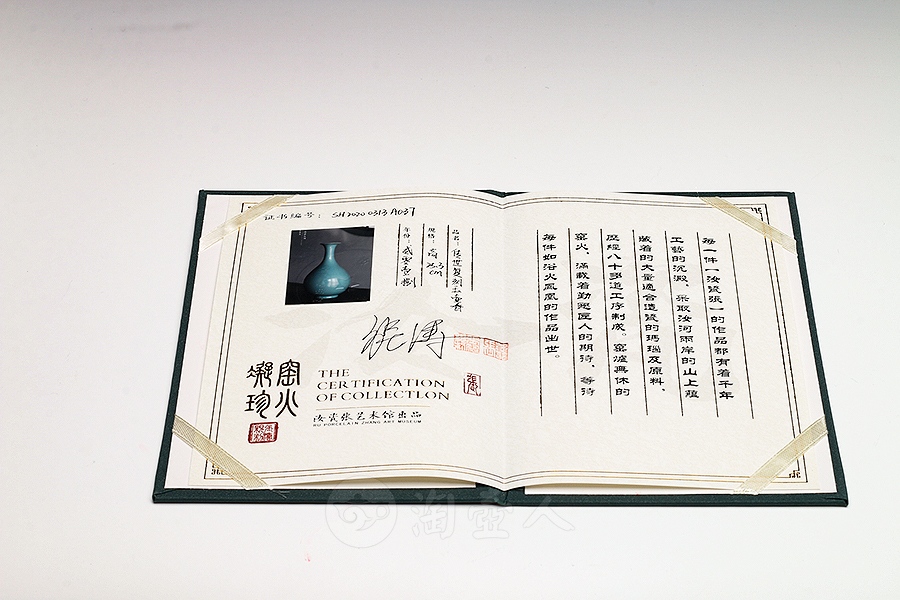 证书编号：SH20200313A037
品名：传世复刻玉壶春
规格：高 23 cm
年份：贰零壹捌
張濤
窑火
凝珍
THE
CERTIFICATION
OF COLLECTION
汝瓷张艺术馆出品
RU PORCELAIN ZHANG ART MUSEUM
張
每一件【汝瓷張】的作品都有着千年
工藝的沉澱。采取汝河兩岸的山上蘊
藏着的大量適合造瓷的瑪瑙及原料，
歷經八十多道工序制成。窑爐無休的
窑火，滿載着勤懇匠人的期待，等待
每件如浴火鳳凰的作品出世。
淘壺人